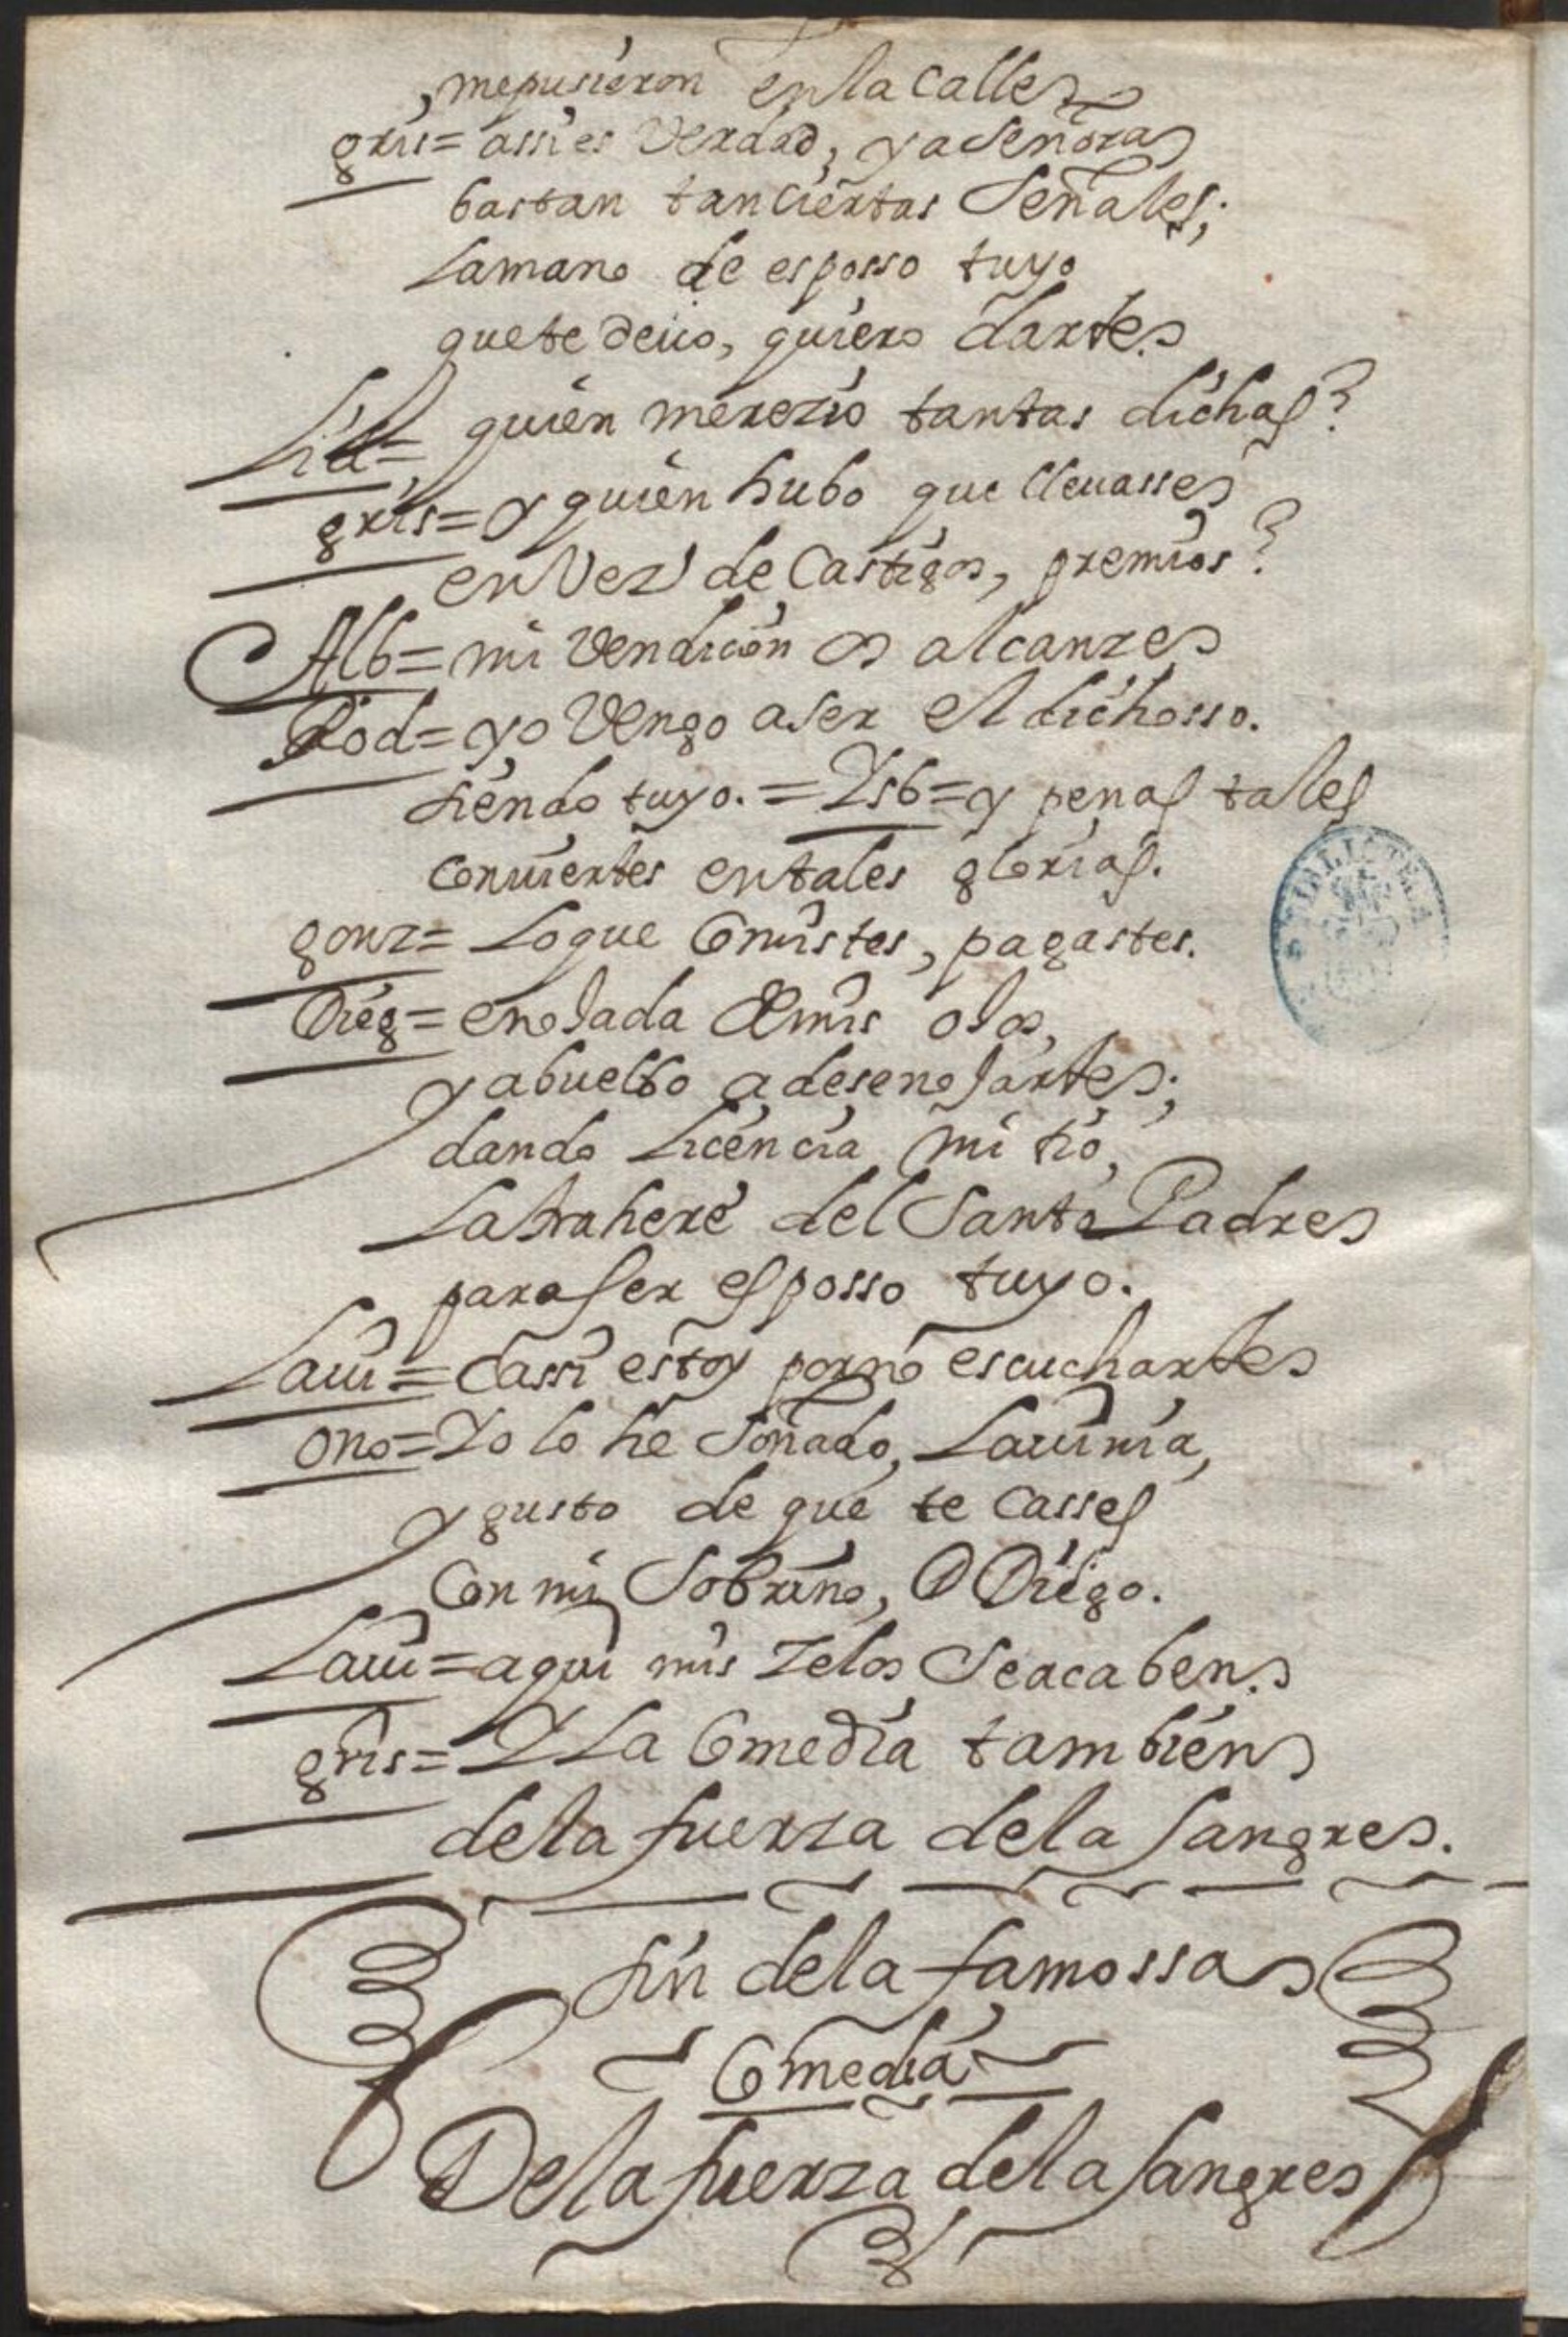 mepusieron enla calle
gris= assi es Verdad, ya Señora
bastan tan ciertas Señales;
La mano de esposso tuyo
que te deuo, quiero darte.
Lid= quien merezio tantas dichas?
gris= y quien hubo que lleuasse
en Vez de Castigos, premios?
Alb= mi Vendicion os alcanze
Rod= yo Vengo a ser el dichosso.
siendo tuyo. = Ysb= y penas tales
conuiertes en tales glorias.
gonz= Lo que Comistes, pagastes.
Dieg= enojada de mis ojos,
ya buelbo a desenojarte;
dando Licencia mi tio,
La trahere del Santo Padre
para ser esposso tuyo.
Laui= Cassi estoy por no escucharte
ono= Yo lo he Soñado, Lauinia,
y gusto de que te Casses
Con mi Sobrino, D Diego.
Laui= aqui mis zelos Se acaben.
gris= Y La Comedia tambien
de la fuerza de la Sangre.
fin de la famossa
Comedia
De la fuerza de la Sangre